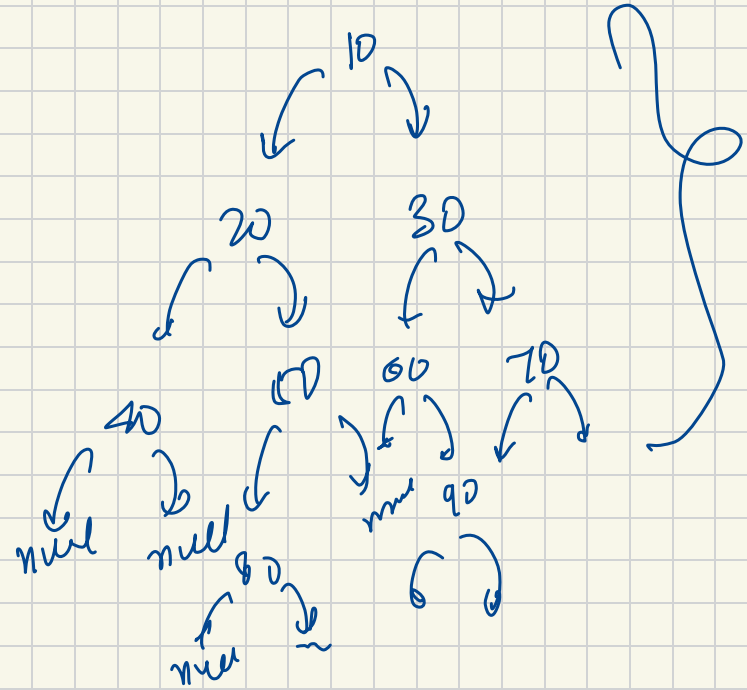 10
20 30
40 50 60 70
null null null 90
80
null